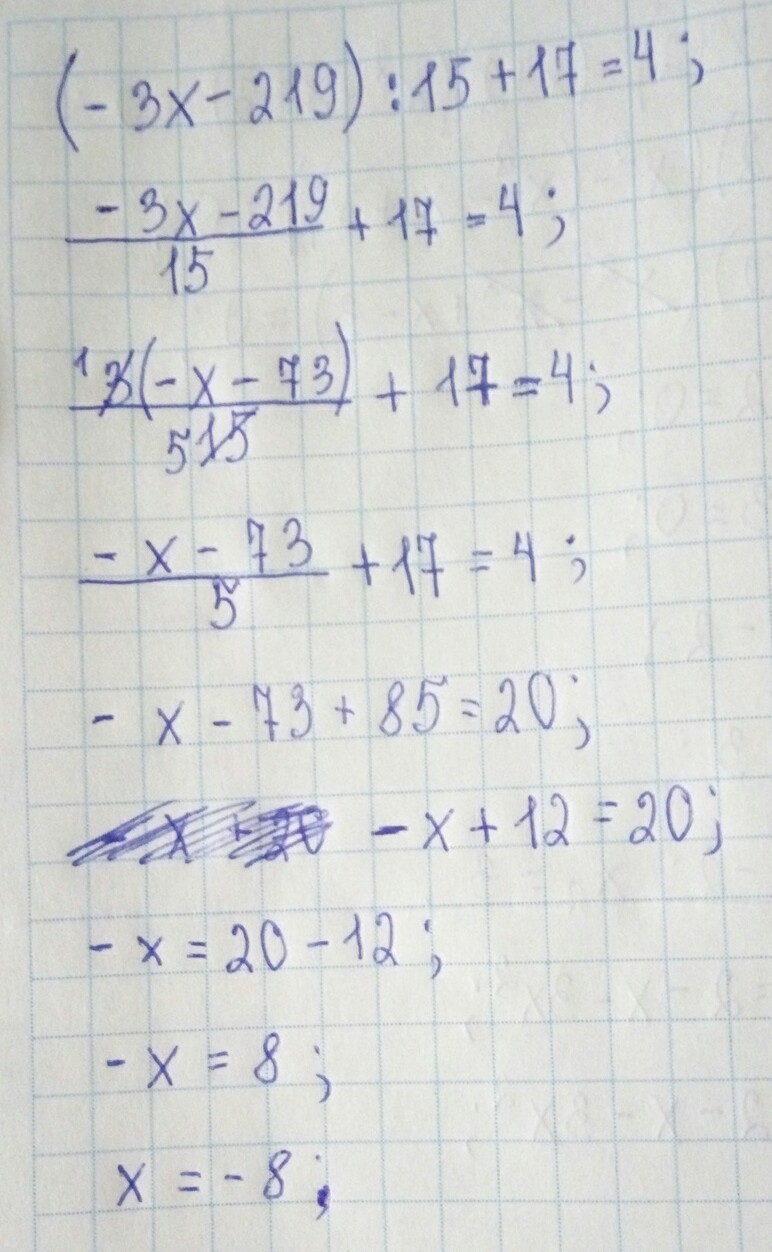 (-3x-219):15+17=4;
-3x-219/15 + 17 = 4;
1 3(-x-73)/5 15 + 17 = 4;
-x-73/5 + 17 = 4;
-x-73+85=20;
-x+12=20;
-x=20-12;
-x=8;
x=-8;